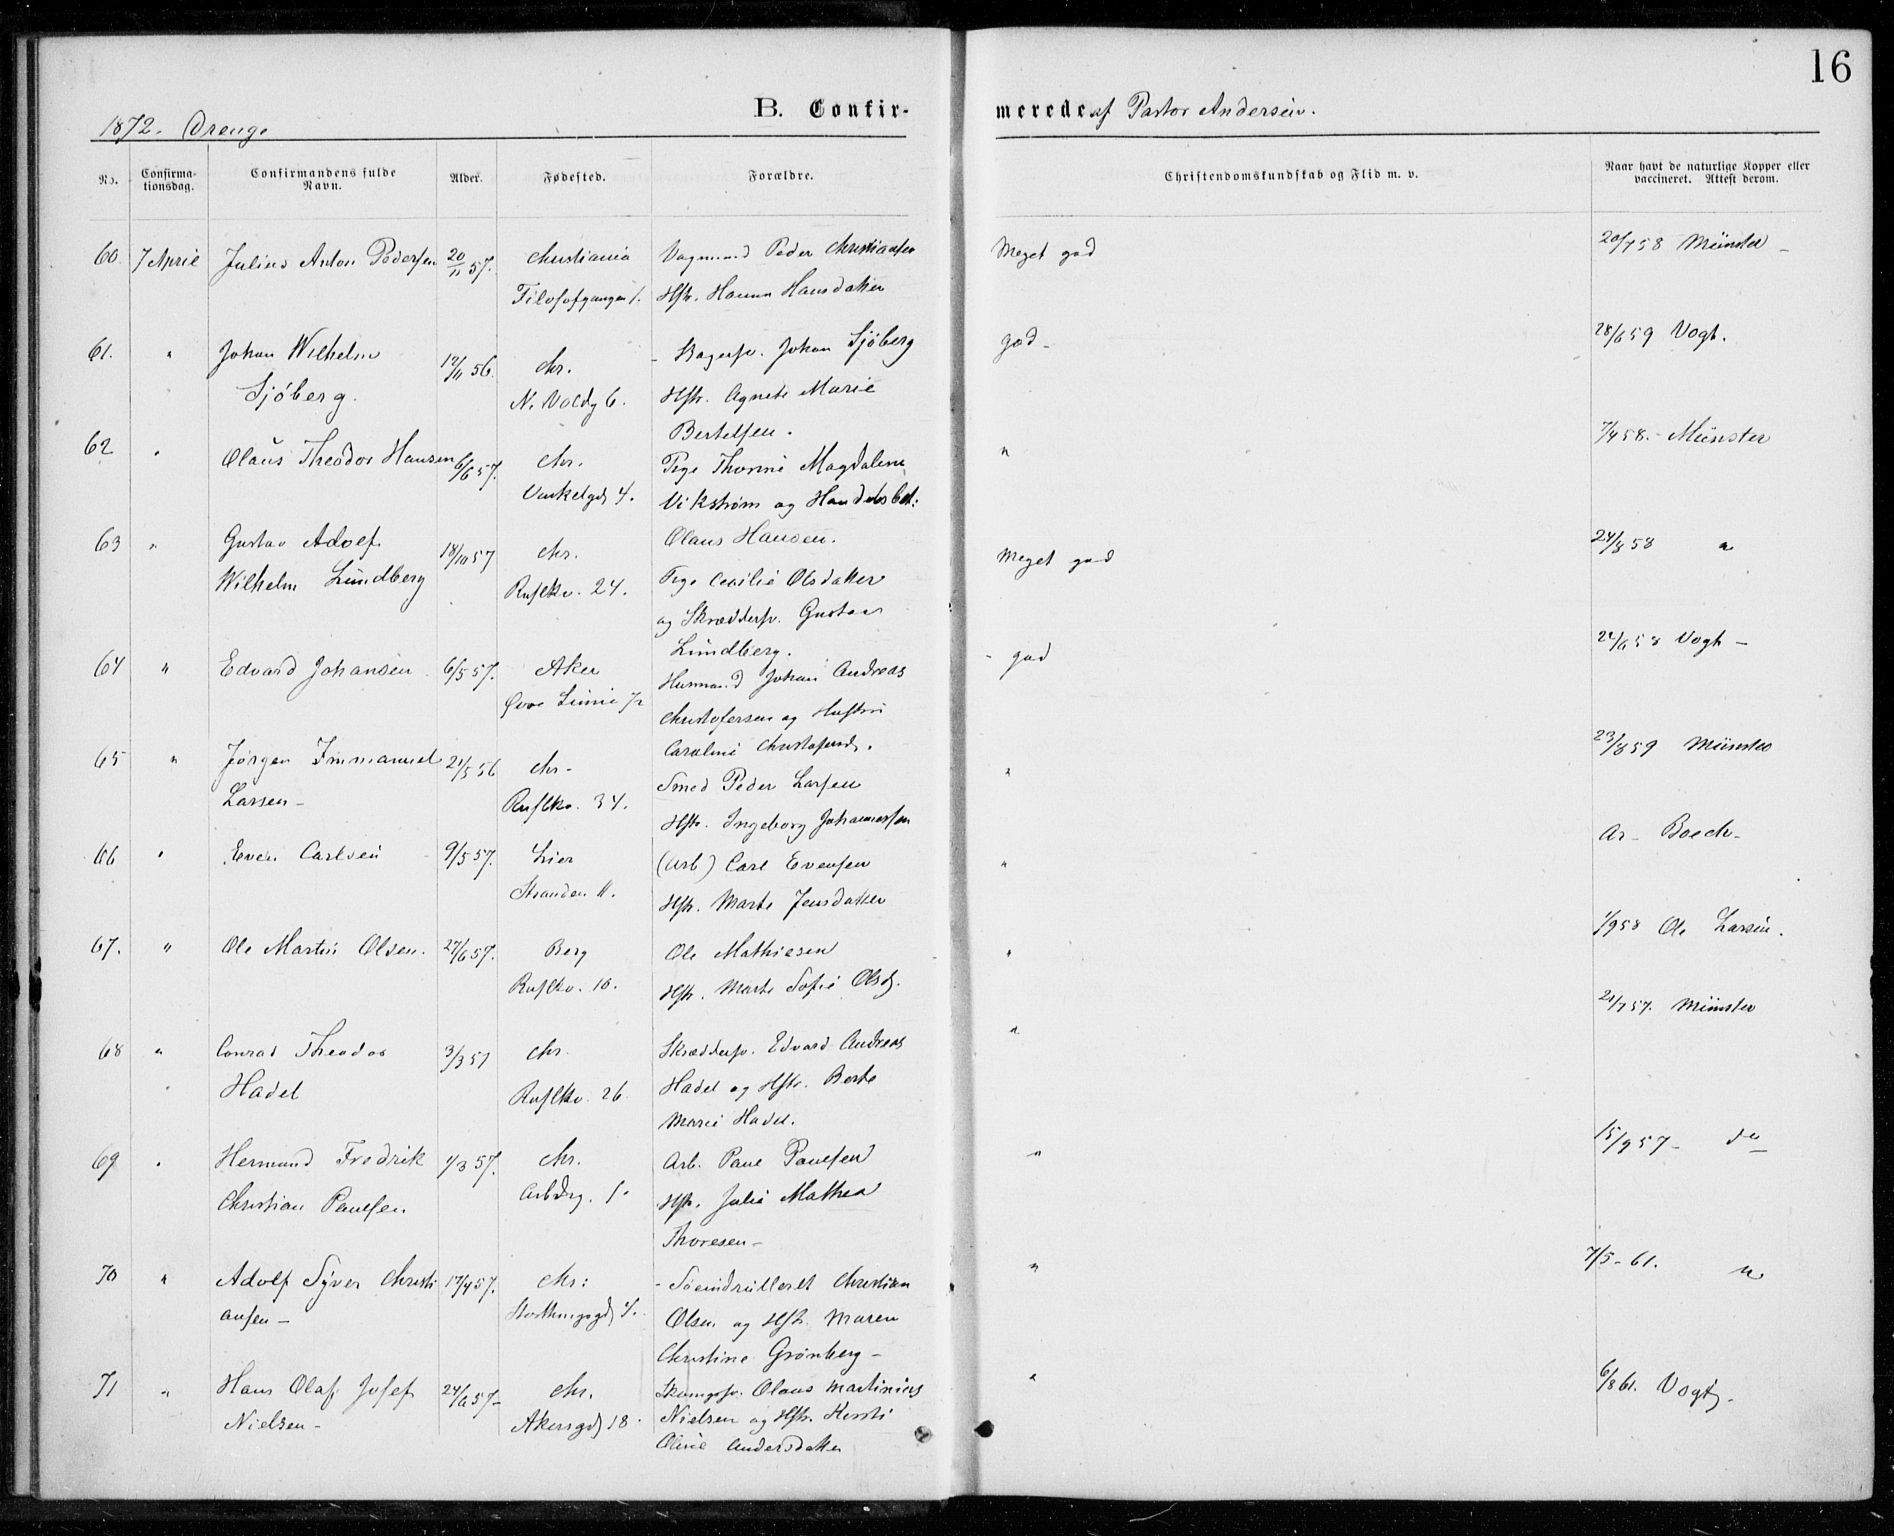 16
B. Confir-
merede af Pastor Andersen.
1872. Drenge
No.
Confirma-
tionsdag.
Confirmandens fulde
Navn.
Alder.
Fødested.
Forældre.
Christendomskundskab og Flid m. v.
Naar havt de naturlige Kopper eller
vaccineret. Attest derom.
60 7 April Julius Anton Pedersen 20/11 57. Christiania Peder Christiansen Meget god 20/7 58 Münster
Filosofgangen 1. Hstr. Hanna Hansdatter
61. " Johan Wilhelm 12/11 56. Chr. Johan Sjöberg god 28/6 59 Vogt.
Sjöberg. N. Voldg 6. Hstr. Agnete Marie
Bertelsen.
62 " Olaus Theodor Hansen 6/6 57. Chr. Pige Thorine Magdalene " 7/4 58. Münster
4. Vikstrøm og
Olaus Hansen.
63 " Gustav Adolf 18/10 57 Chr. Meget god 24/8 58 "
Wilhelm Lundberg Rusløkv. 24. Pige Cecilie Olsdatter
og Skrædders. Gustav
Lundberg.
64 " Edvard Johansen 6/5 57. Aker Husmand Johan Andreas god 24/6 58 Vogt
Christofersen og Hustru
Caroline
65 " Jørgen Immanuel 21/5 56 Chr. Smed Peder Larsen " 23/8 59 Münster
Larsen Rusløkv. 34. Hstr. Ingeborg Johannessen
66 " Even Carlsen 9/5 57. Lier (Arb) Carl Evensen " Ar Boeck
Stranden 11. Hstr. Marte Jensdatter
67. " Ole Martin Olsen. 27/6 57. Berg Ole Mathiesen " 1/9 58 Ole Larsen.
Rusløkv. 10. Hstr. Marte Sofie Olsd.
68 " Conrad Theodor 3/3 57 Chr. Skrædders. Edvard Andreas " 21/7 57. Münster
Hadel Rusløkv. 26 Hadel og Hstr. Berte
Marie Hadel.
69 " Hermand Fredrik 1/3 57. Chr. Arb. Paul Paulsen " 15/9 57 do
Christian Paulsen 1. Hstr. Julie Mathea
Thoresen
70 " Adolf Syver Christi 17/4 57. Chr: Søeindrulleret Christian " 7/5 61. "
ansen Storthingsgd 4. Olsen og Hstr. Maren
Christine Grønberg
71 " Hans Olaf Josef 24/6 57 Chr. Olaus Martinius " 6/8 61. Vogt.
Nielsen Akersgd 18. Nielsen og Hstr. Kersti
Oline Andersdatter